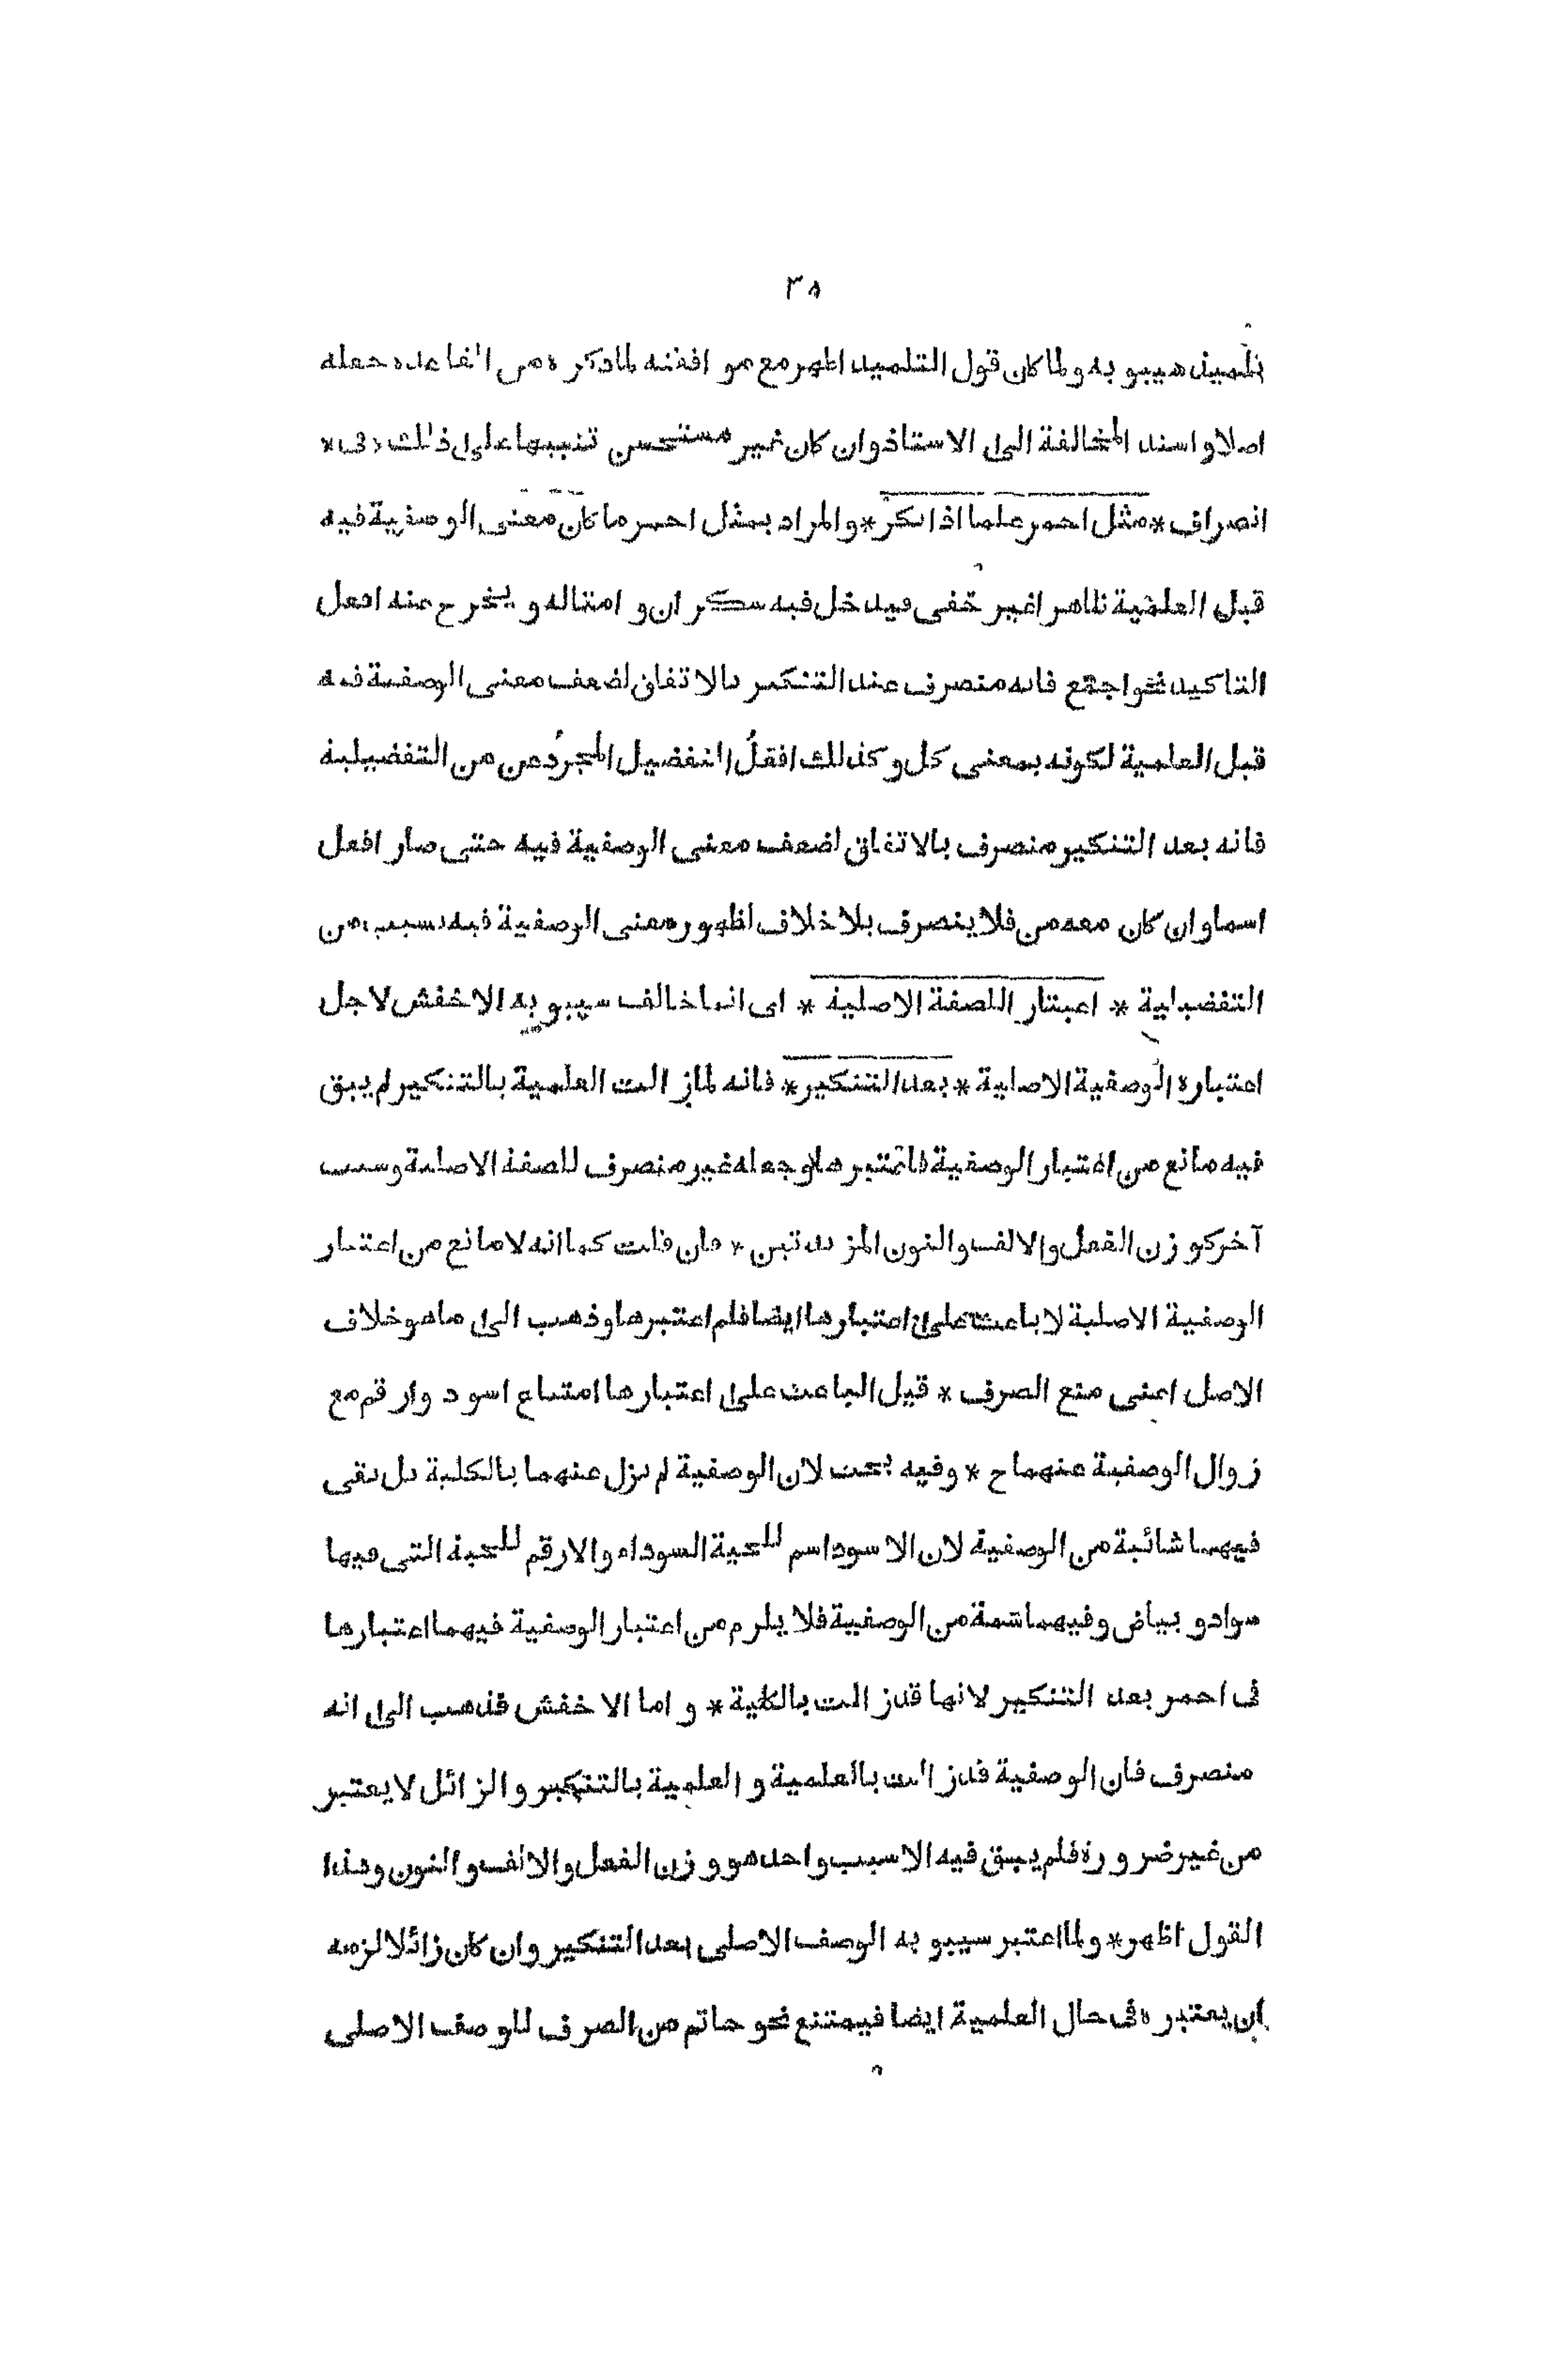 ٣٥
تلميذ سيبويه ولما كان قول التلميذ اظهر مع موافقته لما ذكره من القاعدة جعله
اصلا و اسند المخالفة الى الاستاذ وان كان غير مستحسن تنبيها على ذلك * فى *
انصراف * مثل احمر علما اذا نكر * والمراد بمثل احمر ما كان معنى الوصفية فيه
قبل العلمية ظاهرا غير خفى فيدخل فيه سكران و امثاله و يخرج عنه افعل
التاكيد نحو اجمع فانه منصرف عند التنكير بالاتفاق لضعف معنى الوصفية فيه
قبل العلمية لكونه بمعنى كل و كذلك افعل التفضيل المجرد عن من التفضيلية
فانه بعد التنكير منصرف بالاتفاق لضعف معنى الوصفية فيه حتى صار افعل
اسما و ان كان معه من فلا ينصرف بلا خلاف لظهور معنى الوصفية فيه بسبب من
التفضيلية * اعتبار اللصفة الاصلية * اى انما خالف سيبويه الاخفش لاجل
اعتباره الوصفية الاصلية * بعد التنكير * فانه لما زالت العلمية بالتنكير لم يبق
فيه مانع من اعتبار الوصفية فاعتبرها و جعله غير منصرف للصفة الاصلية وسبب
آخر كوزن الفعل والالف والنون المزيدتين * فان قلت كما انه لا مانع من اعتبار
الوصفية الاصلية لا باعث على اعتبارها ايضا فلم اعتبرها و ذهب الى ما هو خلاف
الاصل اعنى منع الصرف * قيل الباعث على اعتبارها امتناع اسود وارقم مع
زوال الوصفية عنهما ح * وفيه بحث لان الوصفية لم تزل عنهما بالكلية بل بقى
فيهما شائبة من الوصفية لان الاسود اسم للحية السوداء والارقم للحية التى فيها
سواد و بياض و فيهما شمة من الوصفية فلا يلزم من اعتبار الوصفية فيهما اعتبارها
فى احمر بعد التنكير لانها قد زالت بالكلية * و اما الاخفش فذهب الى انه
منصرف فان الوصفية قد زالت بالعلمية و العلمية بالتنكير و الزائل لا يعتبر
من غير ضرورة فلم يبق فيه الا سبب واحد هو وزن الفعل و الالف و النون و هذا
القول اظهر * ولما اعتبر سيبويه الوصف الاصلى بعد التنكير وان كان زائلا لزمه
ان يعتبره فى حال العلمية ايضا فيمتنع نحو حاتم من الصرف للوصف الاصلى